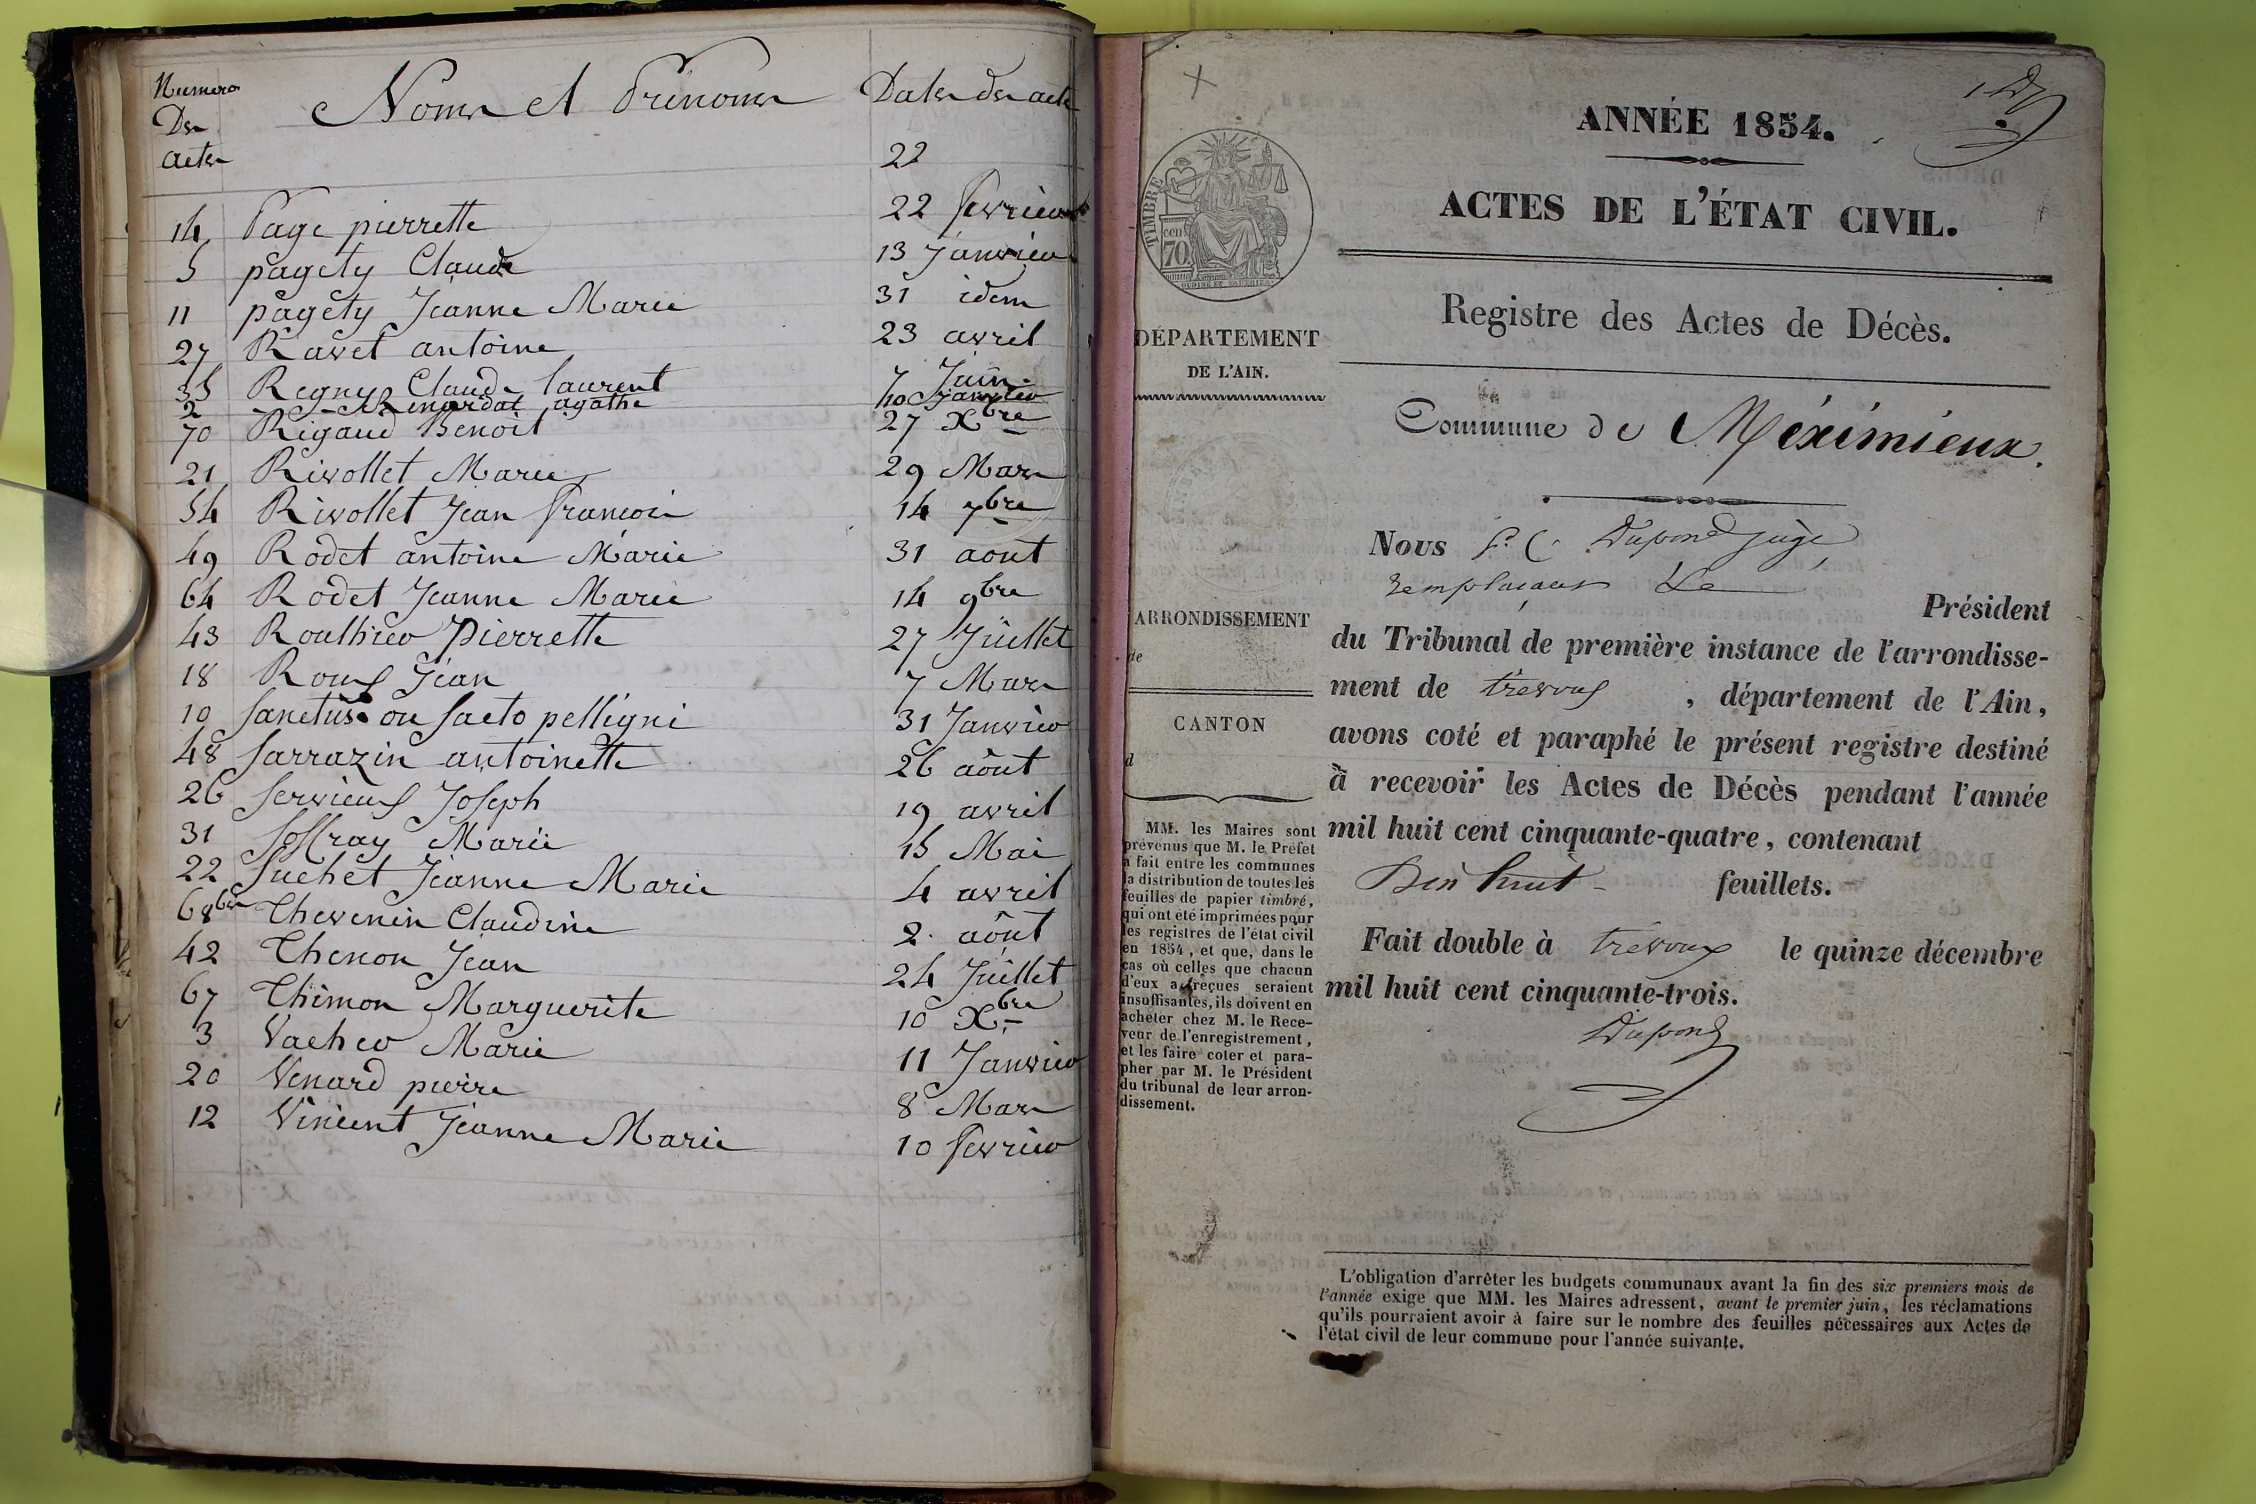 Numero
Des
actes
Noms et Prénoms
Dates des actes
22
14 Page pierrette 22 fevrier
5 pagety Claude 13 Janvier
11 pagety Jeanne Marie 31 idem
27 Ravet antoine 23 avril
35 Regny Claude laurent 7 Juin
2 Renardat agathe 10 Janvier
70 Rigaud Benoit 27 Xbre
21 Rivollet Marie 29 Mars
54 Rivollet Jean francois 14 7bre
49 Rodet antoine Marie 31 aout
64 Rodet Jeanne Marie 14 9bre
43 Roulhier Pierrette 27 Juillet
18 Roux Jean 7 Mars
10 Sanctus ou Sacto pelligni 31 Janvier
48 Sarrazin antoinette 26 aout
26 Servieux Joseph 19 avril
31 Soffray Marie 15 Mai
22 Suchet Jeanne Marie 4 avril
68bis Thevenin Claudine 2 aout
42 Thenon Jean 24 Juillet
67 Thimon Marguerite 10 Xbre
3 Vacher Marie 11 Janvier
20 Venard pierre 8 Mars
12 Vincent Jeanne Marie 10 fevrier
TIMBRE
cen
70
DÉPARTEMENT
DE L'AIN.
ARRONDISSEMENT
de
CANTON
d
MM. les Maires sont
prévenus que M. le Préfet
a fait entre les communes
la distribution de toutes les
feuilles de papier timbré,
qui ont été imprimées pour
les registres de l'état civil
en 1854, et que, dans le
cas où celles que chacun
d'eux a reçues seraient
insuffisantes, ils doivent en
acheter chez M. le Rece-
veur de l'enregistrement,
et les faire coter et para-
pher par M. le Président
du tribunal de leur arron-
dissement.
ANNÉE 1854.
ACTES DE L'ÉTAT CIVIL.
Registre des Actes de Décès.
Commune de Méximieux.
Nous P. C. Dupond juge
remplaçant Le Président
du Tribunal de première instance de l'arrondisse-
ment de trévoux, département de l'Ain,
avons coté et paraphé le présent registre destiné
à recevoir les Actes de Décès pendant l'année
mil huit cent cinquante-quatre, contenant
Dix huit feuillets.
Fait double à trévoux le quinze décembre
mil huit cent cinquante-trois.
Dupond
L'obligation d'arrêter les budgets communaux avant la fin des six premiers mois de
l'année exige que MM. les Maires adressent, avant le premier juin, les réclamations
qu'ils pourraient avoir à faire sur le nombre des feuilles nécessaires aux Actes de
l'état civil de leur commune pour l'année suivante.